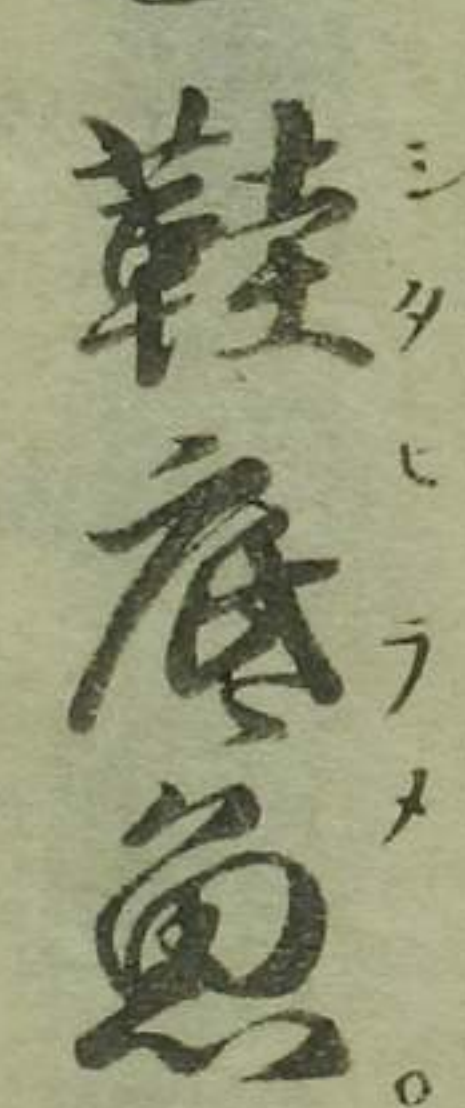 鞋底魚。
シタヒラメ